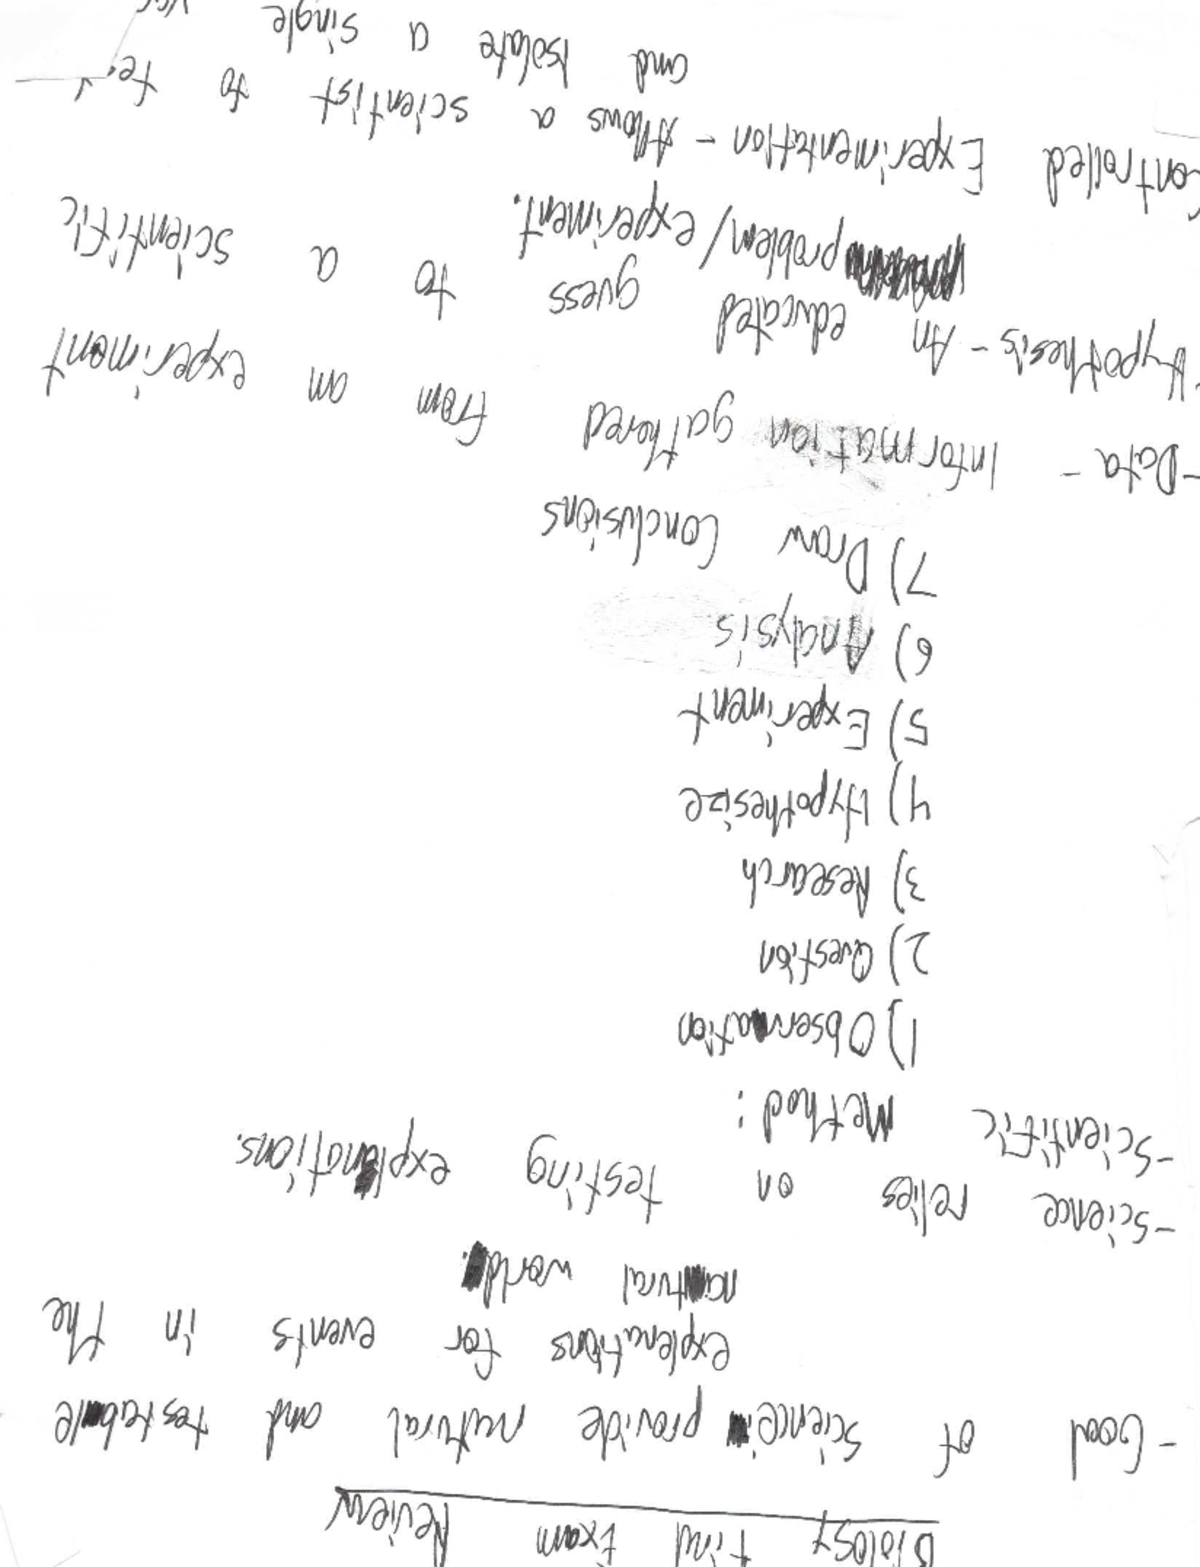 Biology Final Exam Review
- Goal of science: provide natural and testable
explenations for events in the
natural world.
- Science relies on testing explenations.
- Scientific Method:
1) Observation
2) Question
3) Research
4) Hypothesize
5) Experiment
6) Analysis
7) Draw Conclusions
- Data - Information gathered from an experiment
- Hypothesis - An educated guess to a scientific
problem/experiment.
Controlled Experimentation - Allows a scientist to test
and isolate a single